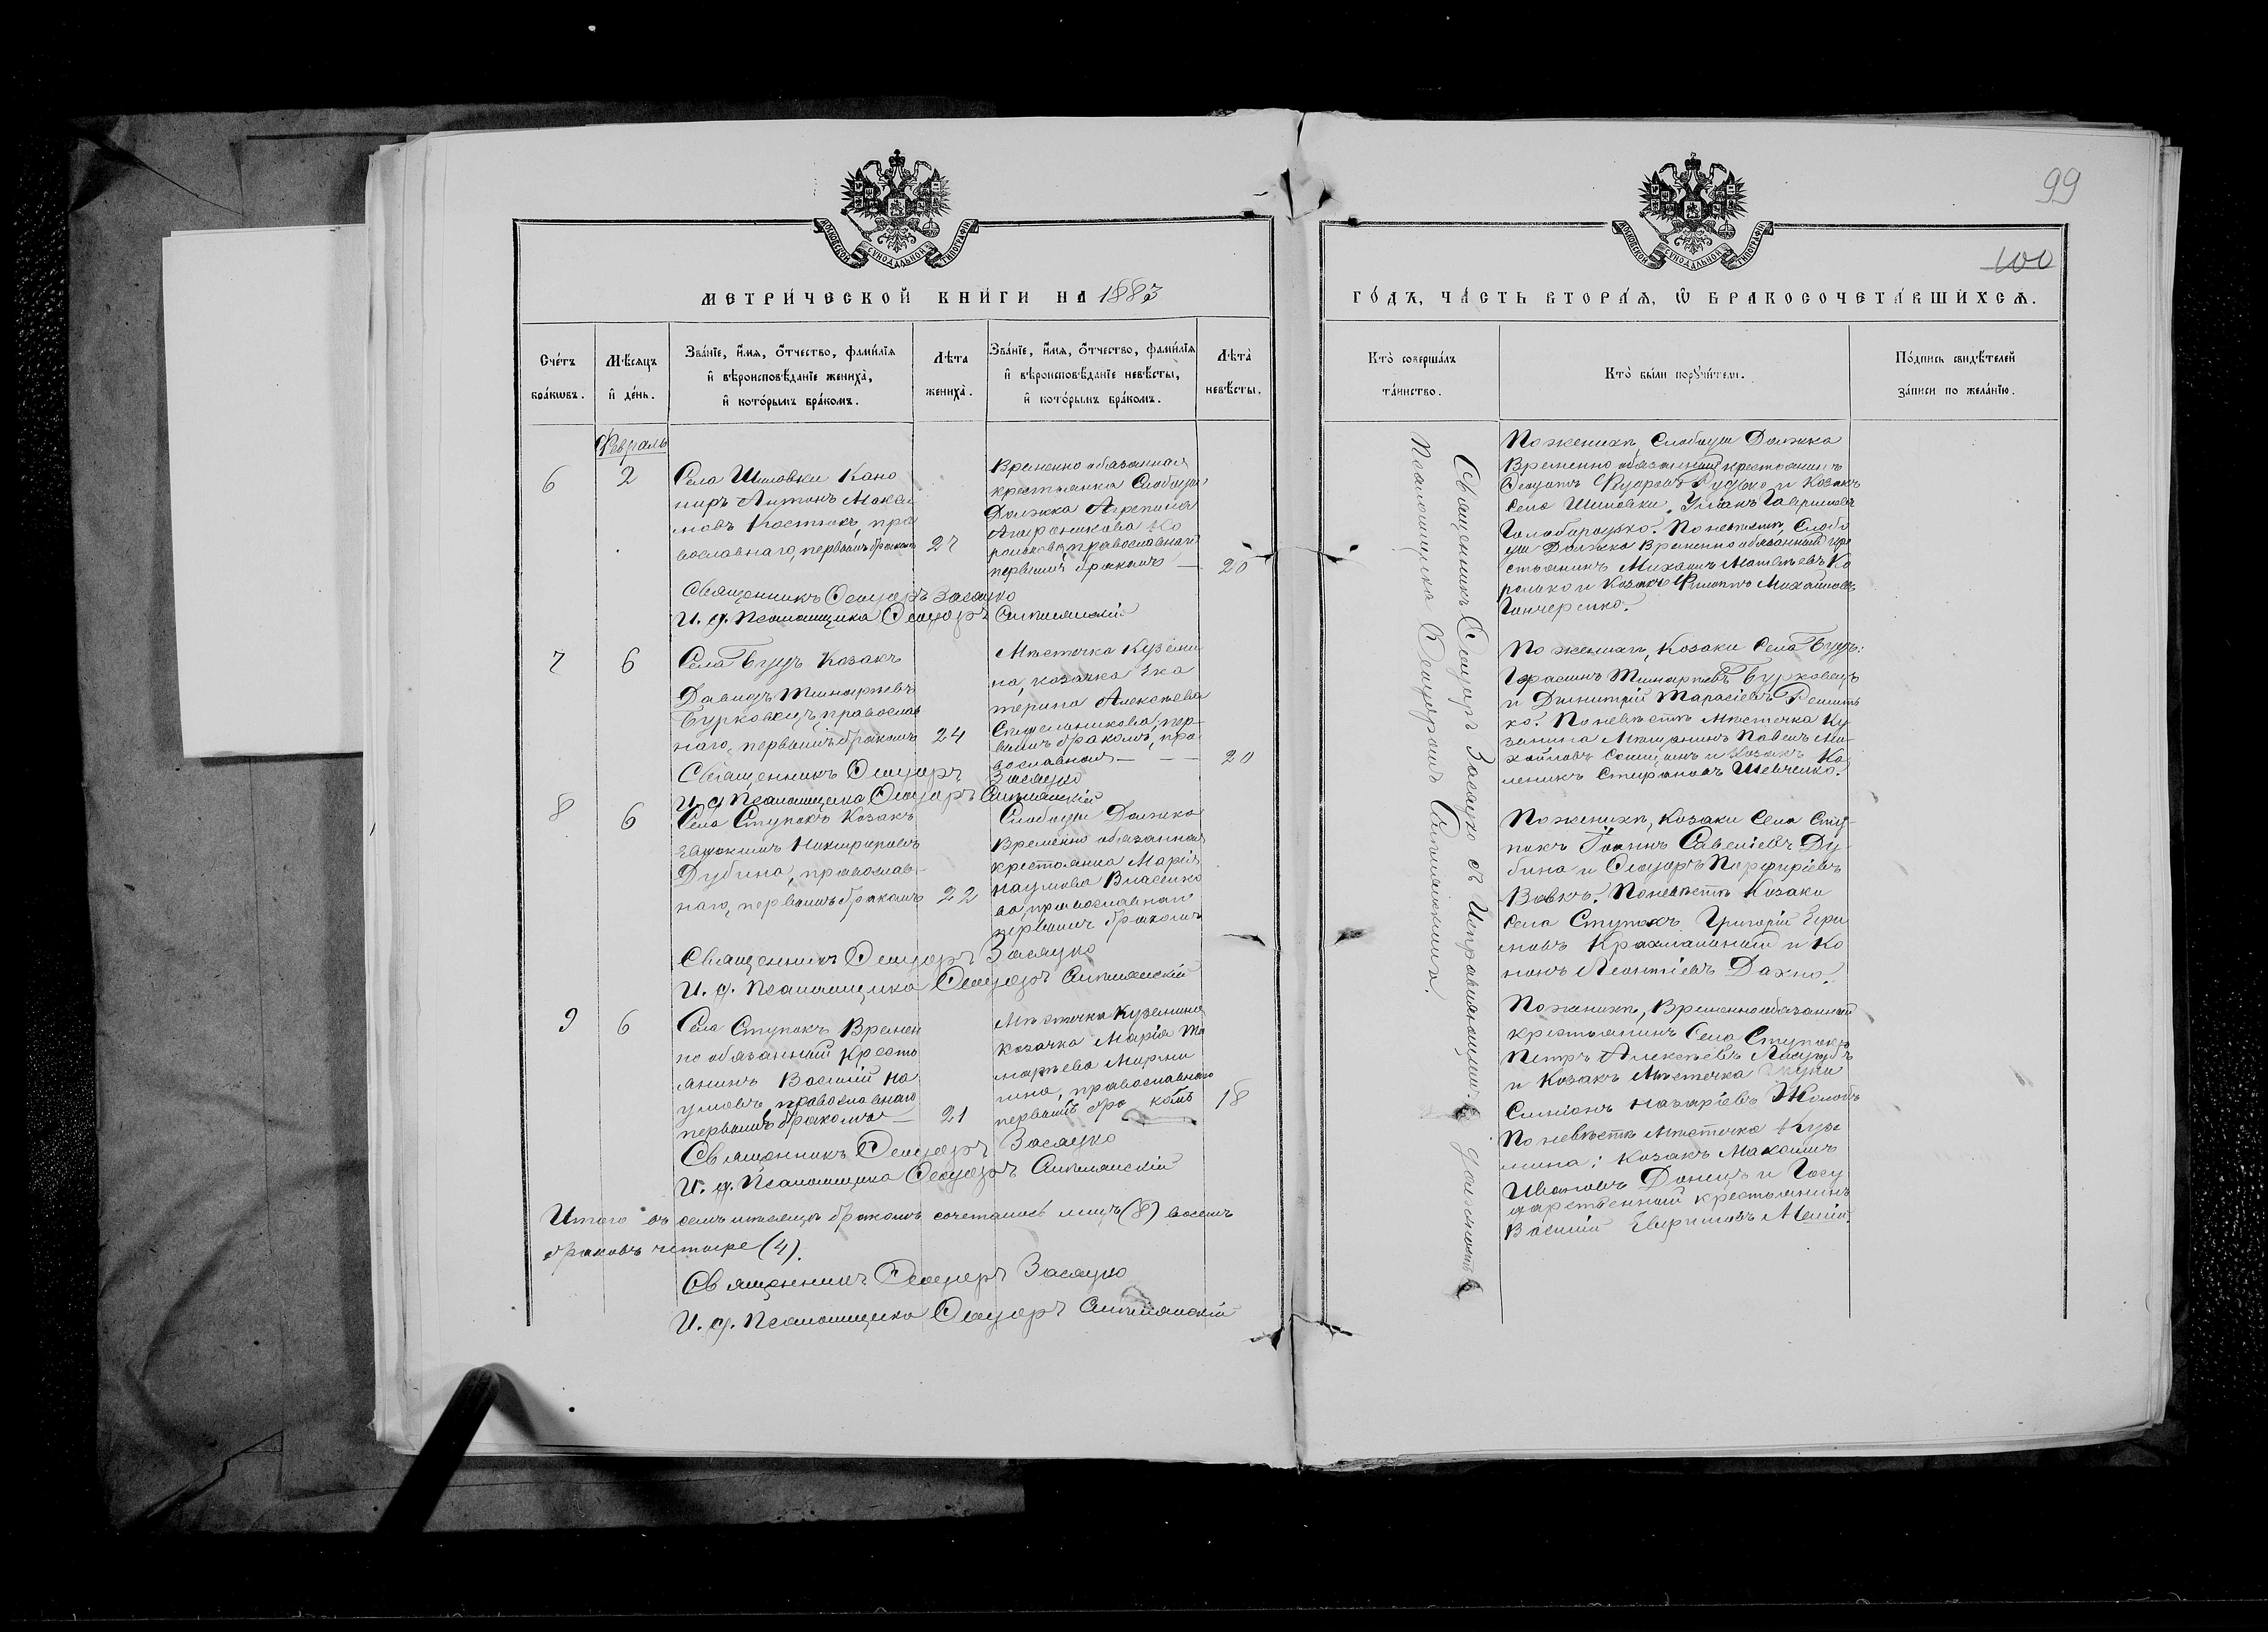 99
100
МОСКОВСКОЙ СѴНОДАЛЬНОЙ ТИПОГРАФІИ
МОСКОВСКОЙ СѴНОДАЛЬНОЙ ТИПОГРАФІИ
МЕТРИ́ЧЕСКОЙ КНИ́ГИ НА 1883
Сче́тъ бра́кѡвъ.
Мѣ́сяцъ и҆ де́нь.
Зва́нїе, и҆́мѧ, ѻ҆́тчество, фами́лїѧ
и҆ вѣроисповѣ́данїе жениха̀,
и҆ кото́рымъ бра́комъ.
Лѣ́та жениха̀.
Зва́нїе, и҆́мѧ, ѻ҆́тчество, фами́лїѧ
и҆ вѣроисповѣ́данїе невѣ́сты,
и҆ кото́рымъ бра́комъ.
Лѣ́та невѣ́сты.
Февраль
6
2
Села Шиловки Кано
ниръ Антонъ Макси
мовъ Костюкъ, пра
вославнаго, первымъ бракомъ
27
Временно обязанная
крестьянка Слободы
Должка Агрепина
православнаго
первымъ бракомъ —
20
Священникъ Ѳеодоръ Засядко
И. д. Псаломщика Ѳеодоръ
7
6
Села Будъ Козакъ
Давидъ
Бурковецъ, православ
наго, первымъ бракомъ
24
Мѣстечка Куземи
на, козачка Ека
терина Алексѣева
пер-
вымъ бракомъ, пра
вославная — — —
20
Священникъ Ѳеодоръ Засядко
И. д. Псаломщика Ѳеодоръ
8
6
Села Ступокъ Козакъ
Евдокимъ Никифоровъ
Дубина, православ-
наго, первымъ бракомъ
22
Слободы Должка
Временно обязанная
крестьянка Марія
Наумова Власенко
ва, православнаго
первымъ бракомъ
Священникъ Ѳеодоръ Засядко
И. д. Псаломщика Ѳеодоръ
9
6
Села Ступокъ Времен
но обязанный Кресть
янинъ Василій На
умовъ, православнаго
первымъ бракомъ —
21
Мѣстечка Куземина
Козачка Марія
православнаго
первымъ бра комъ
18
Священникъ Ѳеодоръ Засядко
И. д. Псаломщика Ѳеодоръ
Итого въ семъ мѣсяцѣ бракомъ сочетались лицъ (8) восемь
браковъ четыре (4).
Священникъ Ѳеодоръ Засядко
И. д. Псаломщика Ѳеодоръ
ГО́ДЪ, ЧА́СТЬ ВТОРА́Ѧ, Ѡ҆ БРАКОСОЧЕТА́ВШИХСѦ.
Кто̀ соверша́лъ
та́инство.
Кто̀ бы́ли порꙋчи́тели.
По́дпись свидѣ́телей
за́писи по жела́нїю.
Священникъ Ѳеодоръ Засядко съ Исправляющимъ должность
Псаломщика Ѳеодоромъ
По женихѣ, Слободы Должка
Временно обязанный крестьянинъ
и Козакъ
Села Шиловки, Гавриловъ
Голобородько. По невѣстѣ, Слобо
ды Должка Временно обязанный кре
стьянинъ Михаилъ Матвѣевъ Ко
ролько и Козакъ Филиппъ Михайловъ
Гончеренко.
По женихѣ, Козаки Села Будъ:
Бурковецъ
и Димитрій Тарасіевъ
ко. По невѣстѣ Мѣстечка Ку
земина Мѣщанинъ Павелъ Ми-
хайловъ и Козакъ Ка
леникъ Стефановъ Шевченко.
По женихѣ, Козаки Села Сту-
покъ Іоаннъ Савеліевъ Ду-
бина и Ѳеодоръ Порфиріевъ
Вовкъ. По невѣстѣ Козаки
Села Ступокъ Григорій Ефи
мовъ и Ко
нонъ Леонтіевъ Дахно.
По женихѣ, Временно обязанный
крестьянинъ Села Ступокъ
Петръ Алексѣевъ
и Козакъ Мѣстечка
Симіонъ Назаріевъ
По невѣстѣ Мѣстечка Кузе
мина: Козакъ Максимъ
Ивановъ Донецъ и Госу
дарственный крестьянинъ
Василій Евфимовъ